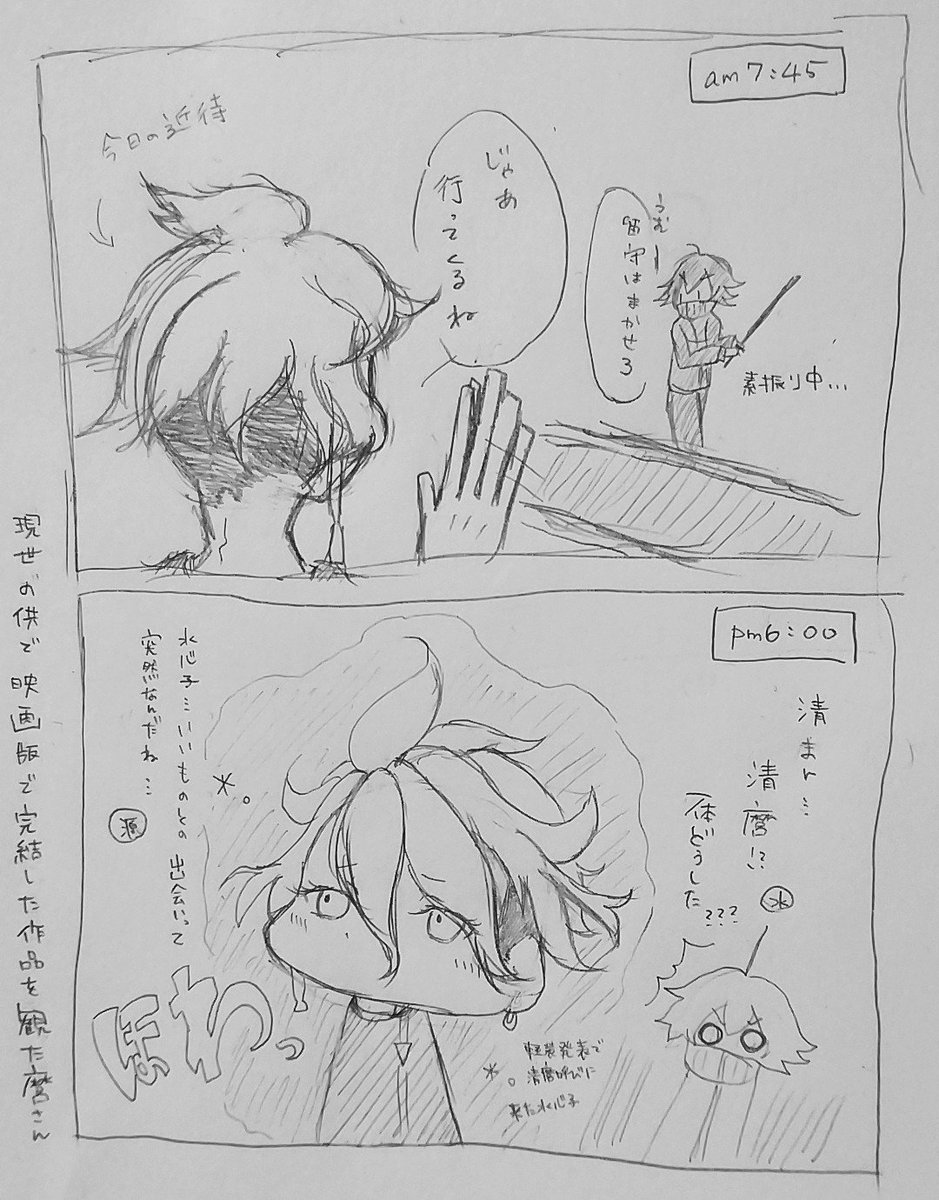 am7:45
今日の近侍
じゃあ
行ってくるね
うむー
留守はまかせろ
素振り中…
pm6:00
清まろ…
清麿!?
一体どうした???
水
水心子…いいものとの出会いって
突然なんだね…
源
ほわっ
軽装発表で
清麿呼びに
来た水心子
現世お供で映画版で完結した作品を観た麿さん